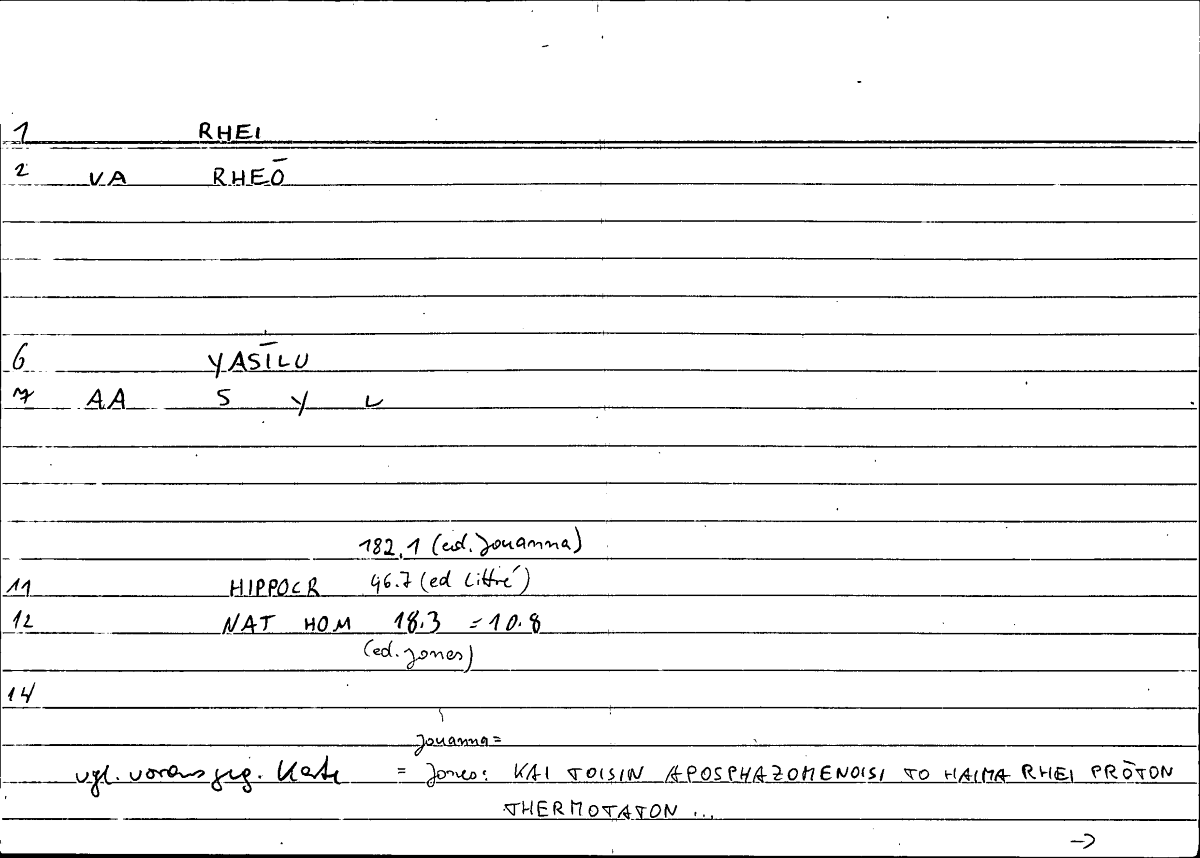 1 RHEI
2 VA RHEŌ
6 YASĪLU
7 AA S Y L
182,1 (ed. Jouanna)
11 HIPPOCR 46.7 (ed Littré)
12 NAT HOM 18.3 = 10.8
(ed. Jones)
14
Jouanna =
vgl. vorausgeg. Karte = Jones: KAI TOISIN APOSPHAZOMENOISI TO HAIMA RHEI PRŌTON
THERMOTATON ...
→